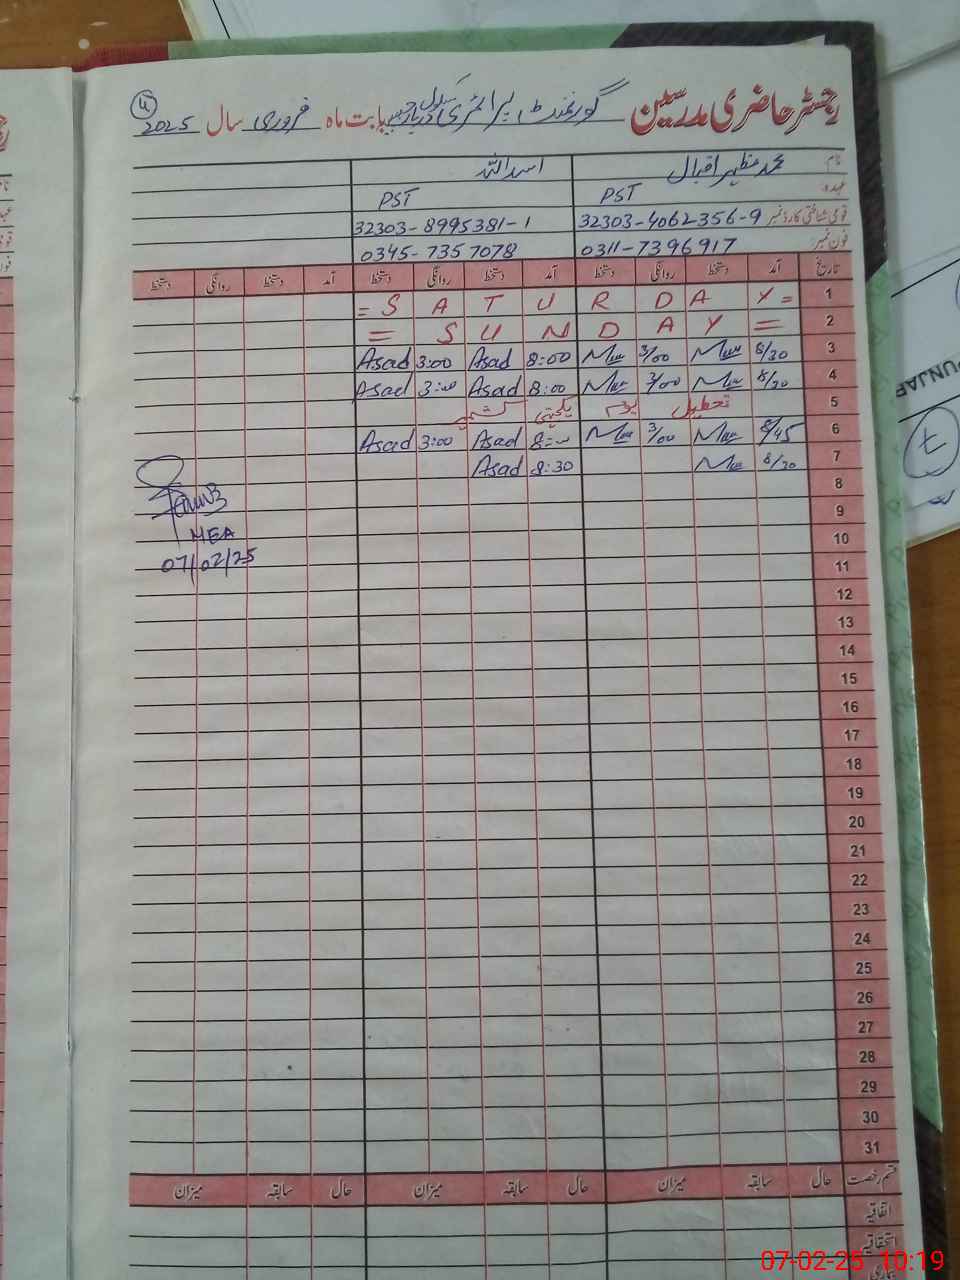 رجسٹر حاضری مدرسین گورنمنٹ پرائمری سکول بابت ماہ فروری سال 2025
نام محمد مظہر اقبال اسد اللہ
عہدہ PST PST
قومی شناختی کارڈ نمبر 32303-4062356-9 32303-8995381-1
فون نمبر: 0311-7396917 0345-7357078
تاریخ آمد دستخط روانگی دستخط آمد دستخط روانگی دستخط آمد دستخط روانگی دستخط
1 = S A T U R D A Y =
2 = S U N D A Y =
3 8/30 3/00 8:00 Asad 3:00 Asad
4 8/30 3/00 8:00 Asad 3:00 Asad
5 تعطیل یوم یکجہتی کشمیر
6 8/45 3/00 8:00 Asad 3:00 Asad
7 8/30 8:30 Asad
8
9
10 MEA
11 07/02/25
12
13
14
15
16
17
18
19
20
21
22
23
24
25
26
27
28
29
30
31
قسم رخصت حال سابقہ میزان حال سابقہ میزان حال سابقہ میزان
اتفاقیہ
استحقاقیہ
PUNJAB
07-02-25 10:19